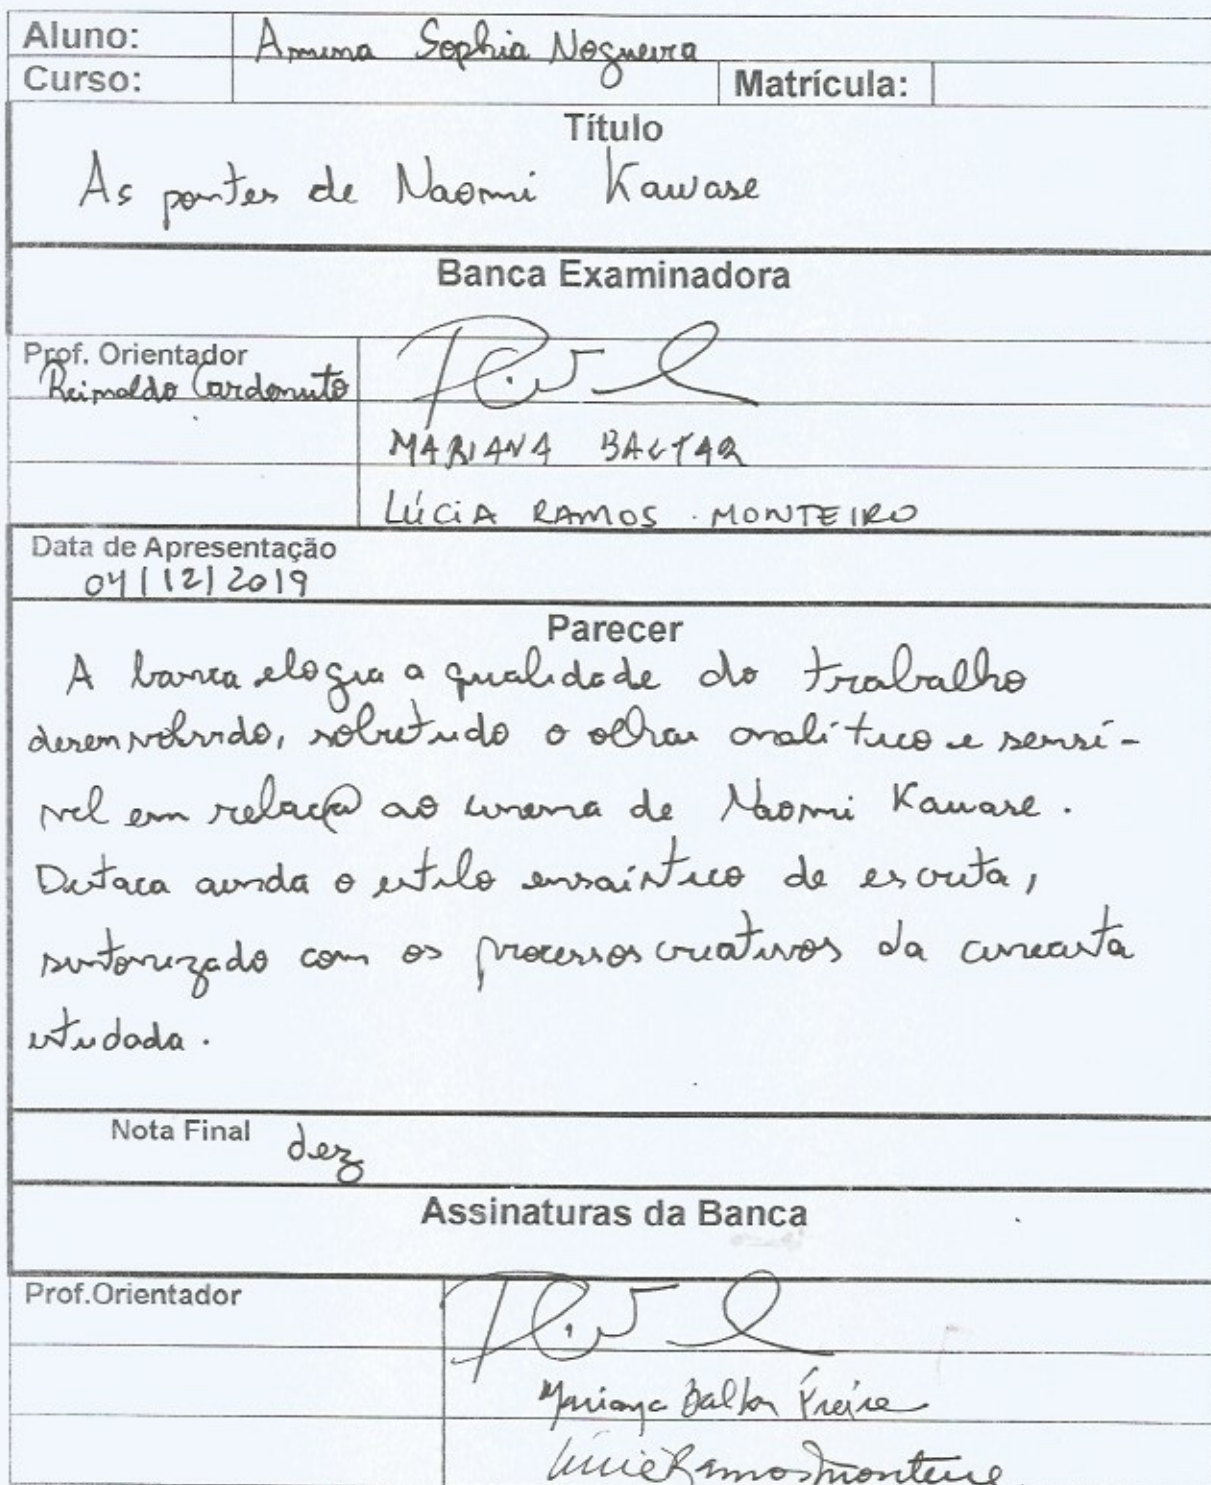 Aluno: Amina Sophia Nogueira
Curso: Matrícula:
Título
As pontes de Naomi Kawase
Banca Examinadora
Prof. Orientador
Reinaldo Cardenuto
MARIANA BALTAR
LÚCIA RAMOS MONTEIRO
Data de Apresentação
04/12/2019
Parecer
A banca elogia a qualidade do trabalho
desenvolvido, sobretudo o olhar analítico e sensí-
vel em relação ao cinema de Naomi Kawase.
Destaca ainda o estilo ensaístico de escrita,
sintonizado com os processos criativos da cineasta
estudada.
Nota Final dez
Assinaturas da Banca
Prof.Orientador
Mariana Baltar Freire
Lúcia Ramos Monteiro